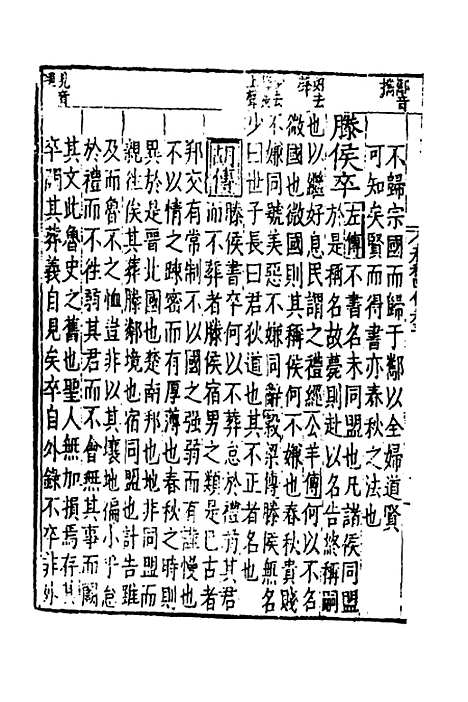 不歸宗國而歸于鄰以全婦道賢
可知矣賢而得書亦春秋之法也
滕侯卒 左傳不書名未同盟也凡諸侯同盟
於是稱名故薨則赴以名告終稱嗣
也以繼好息民謂之禮經 公羊傳何以不名
微國也微國則其稱侯何不嫌也春秋貴賤
不嫌同號美惡不嫌同辭 穀梁傳滕侯無名
少曰世子長曰君狄道也其不正者名也
胡傳 滕侯書卒何以不葬怠於禮弱其君
而不葬者滕侯宿男之類是已古者
邦交有常制不以國之強弱而有謹慢也
不以情之踈密而有厚薄也春秋之時則
異於是晉北國也楚南邦也地非同盟而
親往矣其葬滕鄰境也宿同盟也訃告雖
及而魯不之恤豈非以其壤地偏小乎怠
於禮而不往弱其君而不會無其事而闕
其文此魯史之舊也聖人無加損焉存其
卒闕其葬義自見矣卒自外錄不卒非外